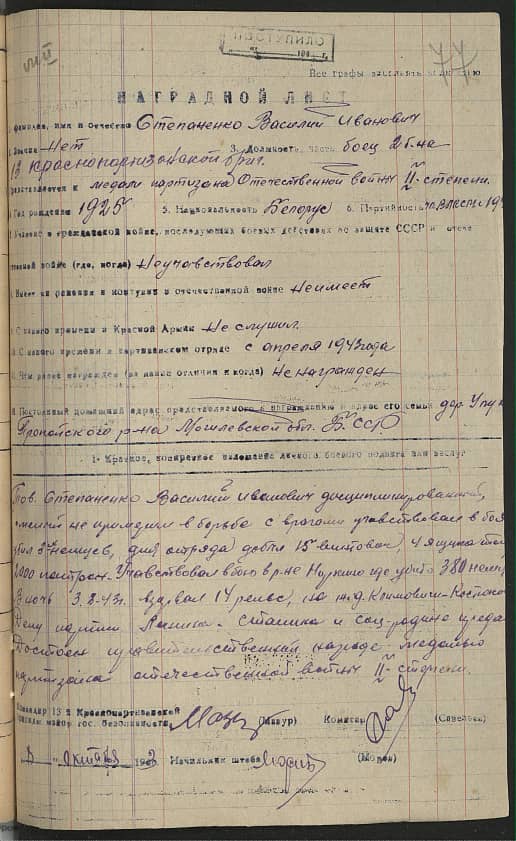 77
Все графы
НАГРАДНОЙ ЛИСТ
Фамилия, имя и отчество Степаненко Василий Иванович
Звание Нет 3. Должность, часть боец 2 б-на
13 Краснопартизанской бриг.
Представляется к медали партизана Отечественной войны II-степени.
Год рождения 1925 5. Национальность Белорус 6. Партийность ВЛКСМ
Участие в гражданской войне, последующих боевых действиях по защите СССР и отече
ственной войне (где, когда) Неучавствовал
Имеет ли ранения и контузии в отечественной войне Неимеет
С какого времени в Красной Армии Не служил
С какого времени в партизанском отряде с апреля 1943 года
Чем ранее награжден (за какие отличия и когда) Не награжден
Постоянный домашний адрес представляемого к награждению и адрес его семьи дер.
Пропойского р-на Могилевской обл. БССР
1. Краткое, конкретное изложение личного боевого подвига или заслуг
Тов. Степаненко Василий Иванович дисциплинированный,
в борьбе с врагами учавствовал в боя
убил 5 немцев, для отряда добыл 15 винтовок, 4 ящика
патрон. Учавствовал в бою в р-не где убито 380 немц
В ночь 3.8-43г. взорвал 14 рельс, на ж.д. Климовичи-
Делу партии Ленина-Сталина и соц-родине преда
Достоин правительственной награде медалью
партизана отечественной войны II-степени.
Командир 13 й Краснопартизанской
бригады майор гос. безопасности (Мазур) Комиссар (Савельев)
октября 1943 Начальник штаба (Мороз)